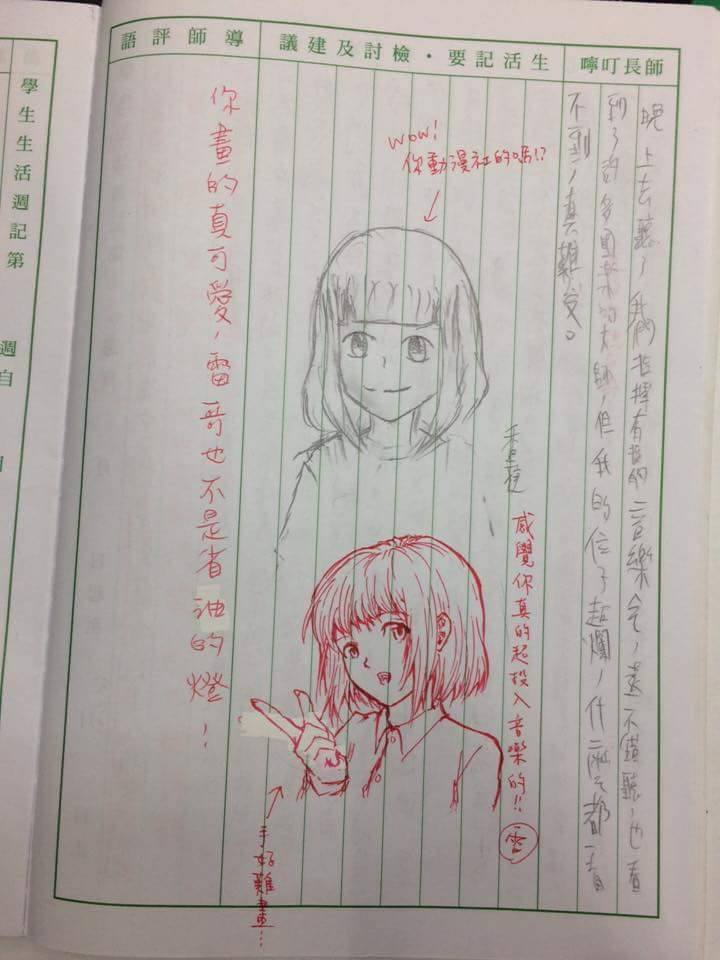 師長叮嚀
生活記要・檢討及建議
導師評語
晚上去聽了我們指揮有指的音樂會，還不錯聽，也看
到了許多國樂的大師，但我的位子超爛，什麼都看
不到，真難受。
wow!
你動漫社的嗎!?
感覺你真的超投入音樂的!!
雷
手好難畫…
你畫的真可愛，雷哥也不是省油的燈！
學生生活週記第
週
自